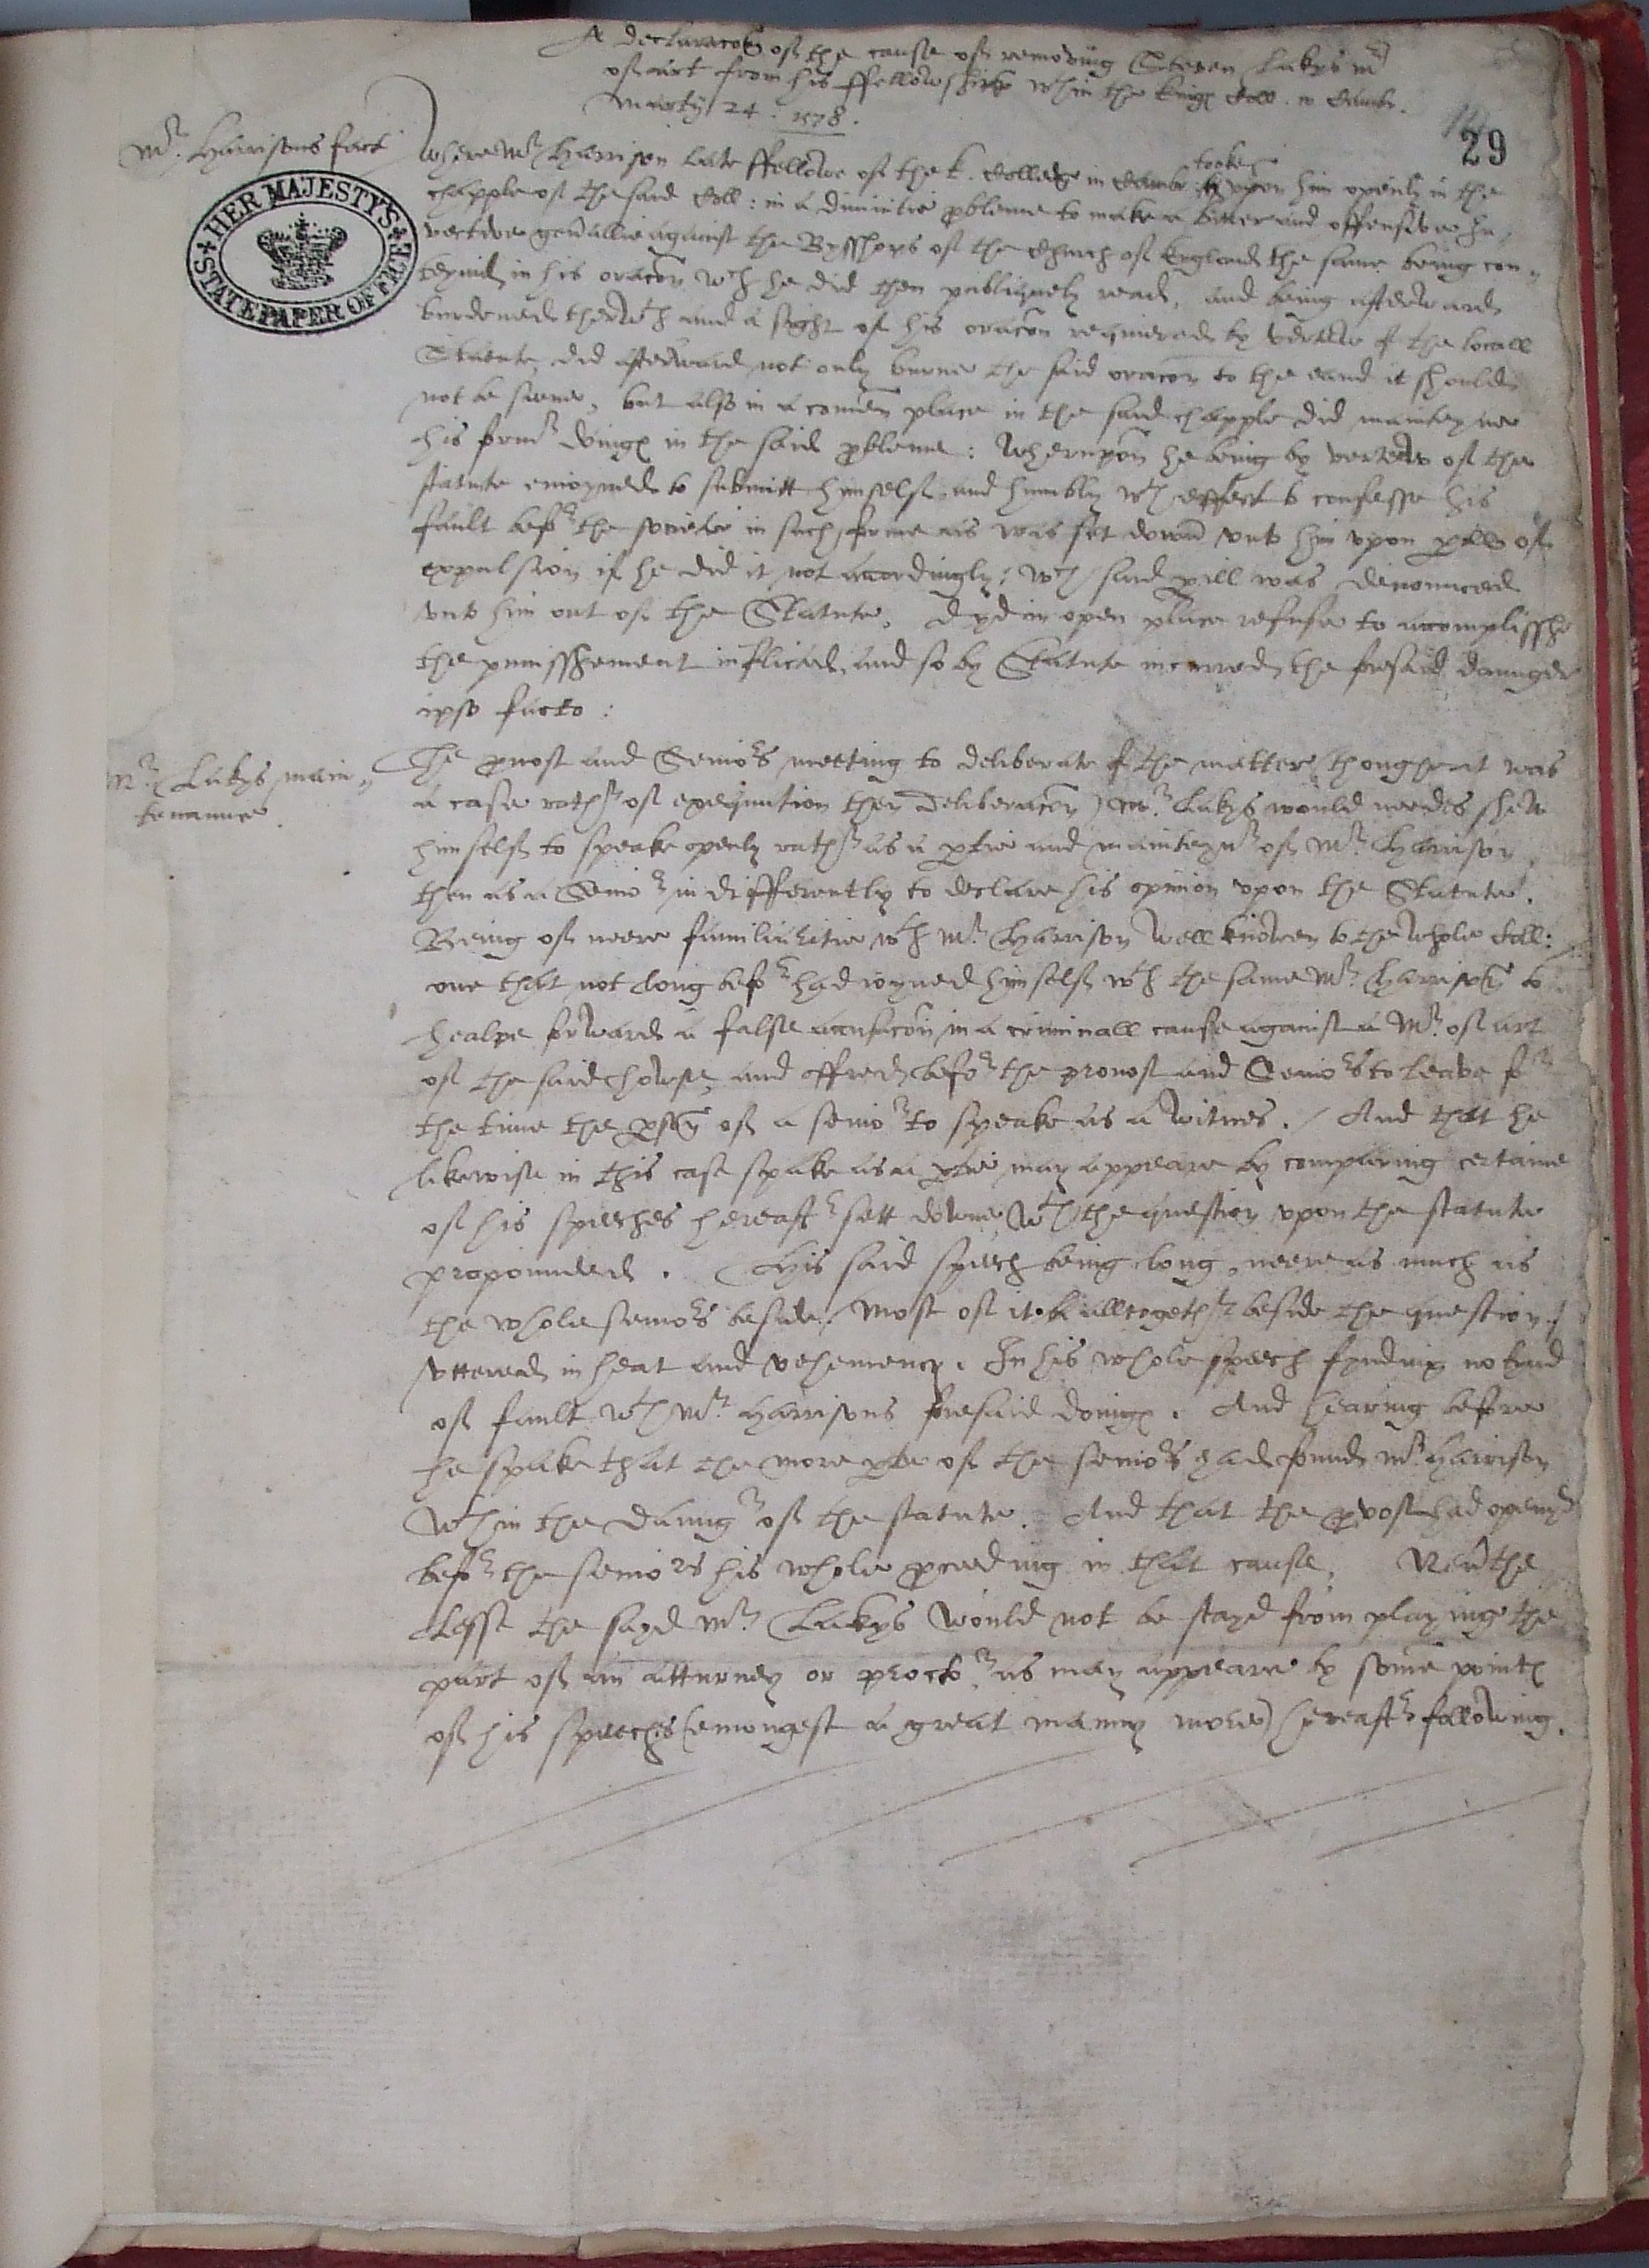 A declaracon of the cause of removing Steven Lakes mr
of art from his ffellowshipp wthin the kings Coll. in Cambr.
Martij 24. 1578.
29
Mr. Harrisons fact
HER MAJESTY'S STATE PAPER OFFICE
Where Mr Harrison late ffellowe of the k. Colledg in Cambr tooke upon him openly in the
chapple of the said Coll: in a divinitie probleme to make a bitter and offensive In,
vective generallie against the Bysshops of the Church of England the same being con,,
teynid in his oracon wch he did then publiquely read, and being afterward
burdened therwth and a syght of his oracon requiered by vertue of the locall
Statute, did afterward not only burne the said oracon to the eand it should
not be seene, but also in a comen place in the said chapple did mainteyne
his formr doings in the said probleme: Wherupon he being by vertue of the
statute enioyned to submitt hymself and humbly wth effect to confesse his
fault before the societie in such forme as was set downe unto him upon payne of
expulsion if he did it not accordingly: wch said payne was denounced
unto him out of the Statute. Dyd in open place refuse to accomplisshe
the punisshement inflicted, and so by Statute incurred the foresaid daunger
ipso facto:
Mr. Lakes main,,
tenaunce.
The provost and Seniors meeting to deliberate of the matter (though it was
a case rather of exequution then deliberacon) Mr. Lakes would needes shew
himself to speake openly rather as a partie and mainteynr of Mr. Harrison,
then as a Senior indifferently to declare his opinion upon the Statute.
Being of neere familiaritie wth Mr. Harrison well knowen to the whole Coll:
one that not long before had ioyned hymself wth the same Mr. Harrison to
healpe forward a false accusacon in a criminall cause against a Mr. of art
of the said howse, and offred before the provost and Seniors to leave for
the time the person of a senior to speake as a witnes. / And that he
likewise in this case spake as a partie may appeare by comparing certaine
of his speeches hereafter sett downe wth the question upon the statute
propounded. His said speech being long, neere as much as
the whole seniors beside, most of it alltogether beside the question,
uttered in heat and vehemency. In his whole speech fynding no kynd
of fault wth Mr. Harrisons foresaid doings. And hearing before
he spake that the more parte of the seniors had found Mr. Harrison
wthin the daunger of the statute. And that the provost had opened
before the seniors his whole proceeding in that cause. Neverthe
lesse the sayd Mr. Lakes would not be stayd from playing the
part of an atturney or proctor, as may appeare by some points
of his speeches (emongest a great manny more) hereafter following.